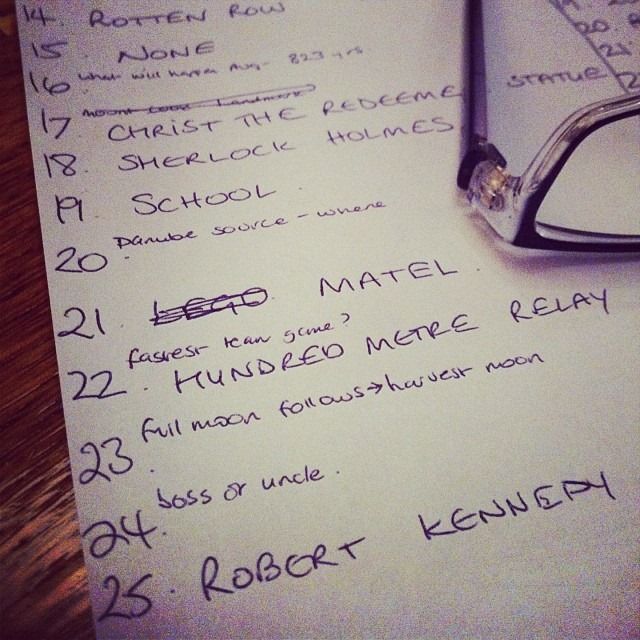 14. ROTTEN ROW
15. NONE
16. what will happen Aug - 823 yrs
17 CHRIST THE REDEEMER STATUE
18. SHERLOCK HOLMES
19. SCHOOL
20. Danube source - where
21. LEGO MATEL.
fastest team game?
22. HUNDRED METRE RELAY
23. full moon follows → harvest moon
24. boss or uncle.
25. ROBERT KENNEDY
19.
20.
21